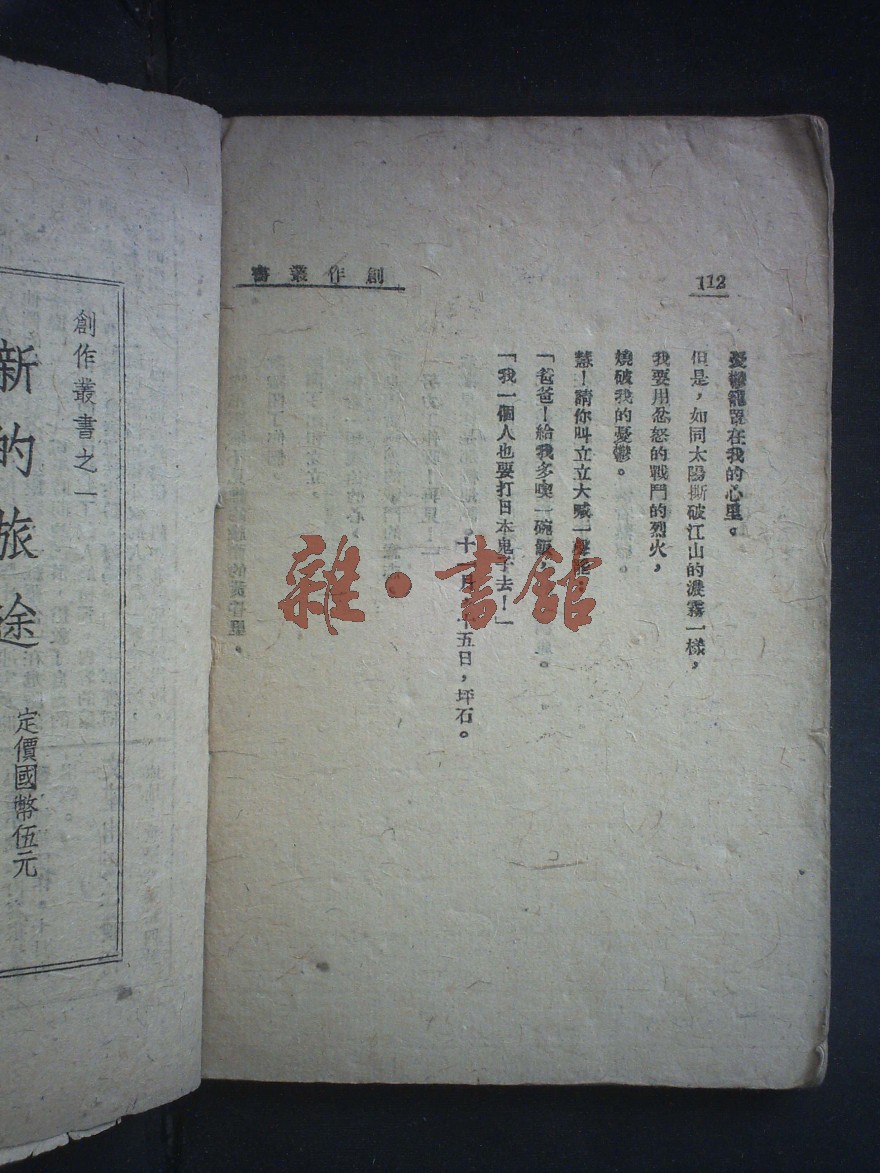 112
創作叢書
憂鬱籠罩在我的心里。
但是，如同太陽撕破江山的濃霧一樣，
我要用忿怒的戰鬥的烈火，
燒破我的憂鬱。
慧！請你叫立立大喊一聲
「爸爸！給我多喫一碗飯，
「我一個人也要打日本鬼子去！」
十 月 十五日，坪石。
創作叢書之一
新的旅途
定價國幣伍元
雜·書館